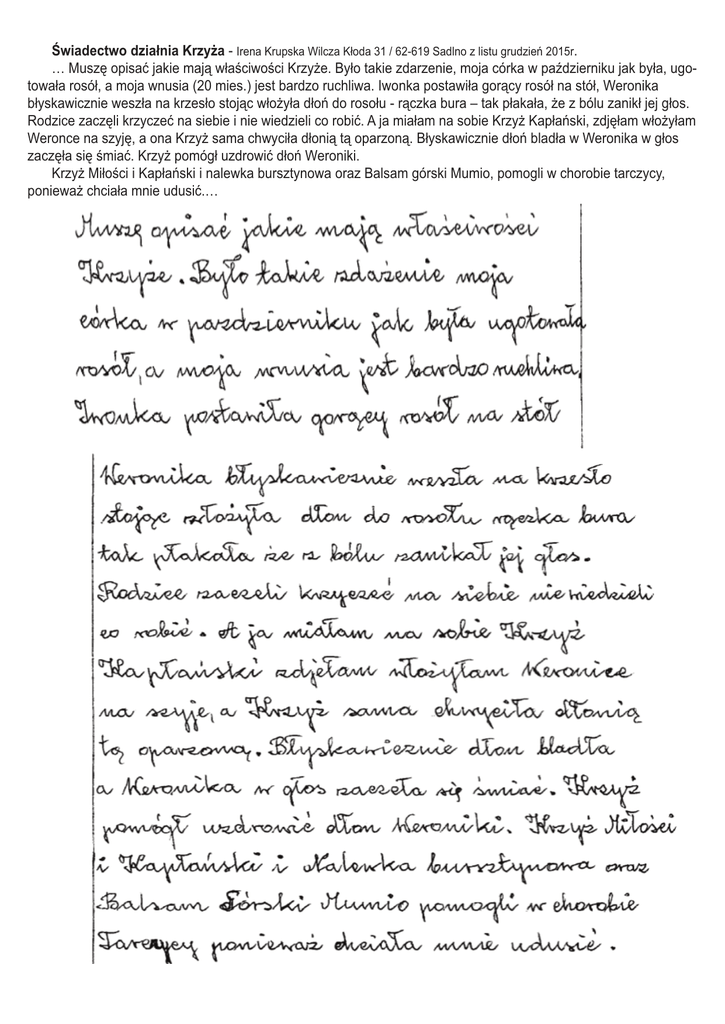 Świadectwo działnia Krzyża - Irena Krupska Wilcza Kłoda 31 / 62-619 Sadlno z listu grudzień 2015r.
… Muszę opisać jakie mają właściwości Krzyże. Było takie zdarzenie, moja córka w październiku jak była, ugo-
towała rosół, a moja wnusia (20 mies.) jest bardzo ruchliwa. Iwonka postawiła gorący rosół na stół, Weronika
błyskawicznie weszła na krzesło stojąc włożyła dłoń do rosołu - rączka bura – tak płakała, że z bólu zanikł jej głos.
Rodzice zaczęli krzyczeć na siebie i nie wiedzieli co robić. A ja miałam na sobie Krzyż Kapłański, zdjęłam włożyłam
Weronce na szyję, a ona Krzyż sama chwyciła dłonią tą oparzoną. Błyskawicznie dłoń bladła w Weronika w głos
zaczęła się śmiać. Krzyż pomógł uzdrowić dłoń Weroniki.
Krzyż Miłości i Kapłański i nalewka bursztynowa oraz Balsam górski Mumio, pomogli w chorobie tarczycy,
ponieważ chciała mnie udusić.…
Muszę opisać jakie mają właściwości
Krzyże. Było takie zdażenie moja
córka w pazdzierniku jak była ugotowała
rosół, a moja wnusia jest bardzo ruchliwa,
Iwonka postawiła gorący rosół na stół
Weronika błyskawicznie weszła na krzesło
stojąc włożyła dłon do rosołu rączka bura
tak płakała że z bólu zanikał jej głos.
Rodzice zaczeli krzyczeć na siebie nie wiedzieli
co robić. A ja miałam na sobie Krzyż
Kapłański zdjełam włożyłam Weronice
na szyje, a Krzyż sama chwyciła dłonią
tą oparzoną. Błyskawicznie dłon bladła
a Weronika w głos zaczeła się śmiać. Krzyż
pomógł uzdrowić dłon Weroniki. Krzyż Miłości
i Kapłański i Nalewka bursztynowa oraz
Balsam Górski Mumio pomogli w chorobie
Tarczycy ponieważ chciała mnie udusić.